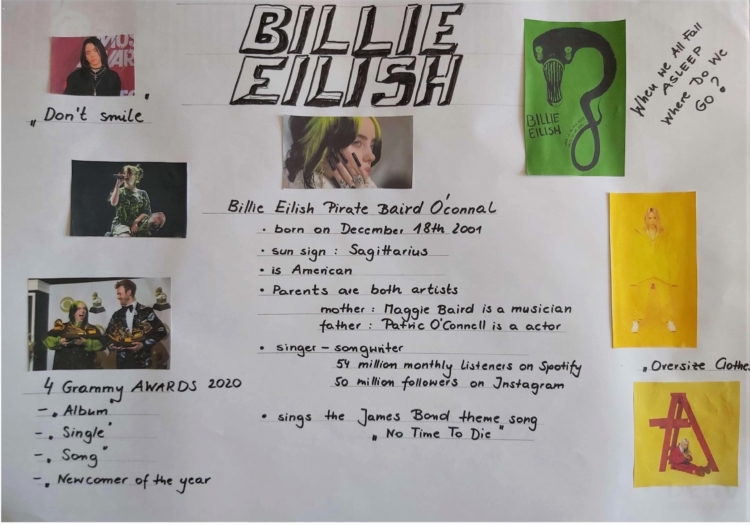 BILLIE
EILISH
„Don't smile"
Billie Eilish Pirate Baird O'connal
• born on December 18th 2001
• sun sign : Sagittarius
• is American
• Parents are both artists
mother : Maggie Baird is a musician
father : Patric O'Connell is a actor
• singer - songwriter
54 million monthly listeners on Spotify
50 million followers on Instagram
• sings the James Bond theme song
„No Time To Die"
4 Grammy AWARDS 2020
-„Album"
-„Single"
-„Song"
-„Newcomer of the year
BILLIE
EILISH
When we All fall
ASLEEP
Where Do We
GO?
„Oversize Clothe